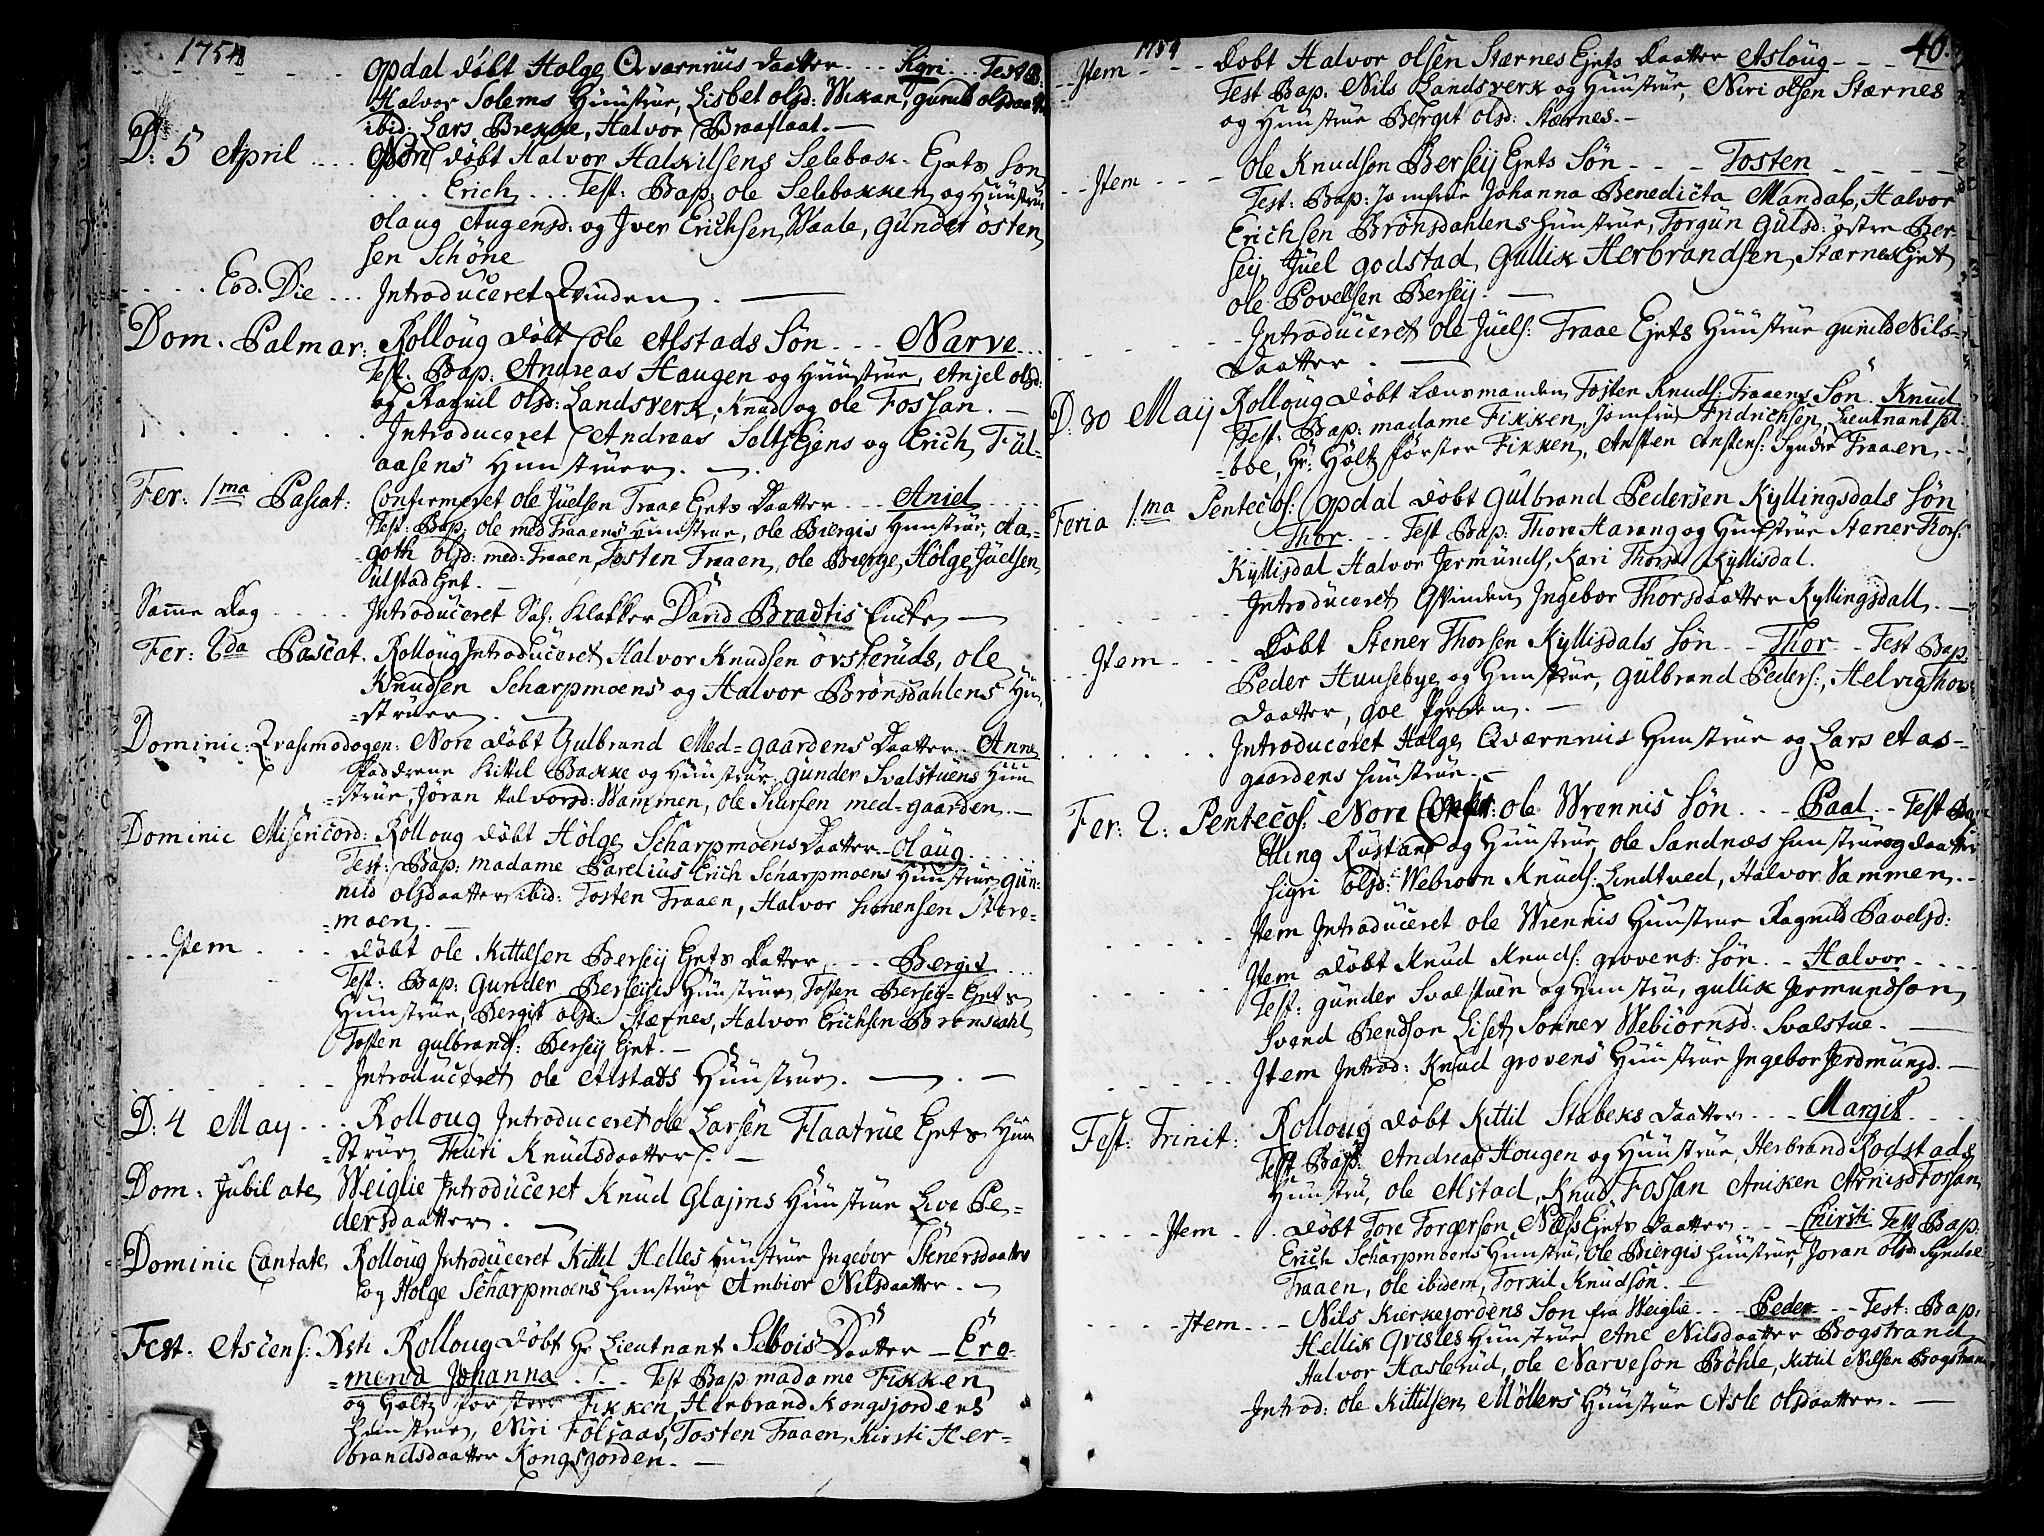 1754
Opdal döbt Holge Qværnruds Daatter - - - Sigri - - - Test:
Halvor Solems Huustrue, Lisbet olsd: Wikan, gunild olsdaatter
ibid: Lars Brekke, Halvor Braaflaat. -
D: 5 April - - - Nore döbt Halvor Halkilsens Selebak-Eyets Son
- - - Erich - - - Test: Bap: ole Selebakken og Huustrue
olaug Augensd: og Iver Erichsen Waale, Gunder östen
sen Schöne
- - - Eod. Die - - - Introduceret Qvinden. -
Dom. Palmar: Rolloug döbt ole Alstads Sön - - - Narve - - -
Test: Bap: Andreas Haugen og Huustrue, Anjel olsd:
og Ragnil olsd: Landsverk, Knud og ole Fossan. -
Introduceret Andreas Solts Ejens og Erich Fül-
aasens Huustruer. -
Fer: 1ma Pascat: Confirmeret ole Juelsen Traae Eyets Daatter - - - Aniel - - -
Test: Bap: ole med Fraaens Huustrue, ole Biergis Huustrue, Aa-
goth olsd: med-Fraaen, Tosten Fraaen, ole Bierge, Holge Juelsen
ulstad Eyet. -
Samme Dag - - - Introduceret Sal: Klokker David Bradtis Encke -
Fer: 2da Pascat. Rolloug Introduceret Halvor Knudsen övsteruds, ole
Knudsen Scharpmoens og Halvor Brönsdahlens Hu-
=struer. -
Dominic: Qvasimodogen: Nore döbt Gulbrand Med=gaardens Daatter - Anne
Faddrene Kittil Bakke og Huustrue, Gunder Svalstuens Huu
=strue, Jöran Halvorsd: Wammen, ole Siursen med=gaarden. -
Dominic Misericord: Rolloug döbt Holge Scharpmoens Daatter - Olaug - - -
Test: Bap: madame Parelius Erich Scharpmoens Huustrue, Gun-
nild olsdaatter ibid: Tosten Fraaen, Halvor Simensen Store-
=moen. -
- - - Item - - - döbt ole Kittilsen Bersey Eyets Datter - - - Bergit - - -
Test: Bap: Gunder Berseys Huustrue, Tosten Bersey=Eyets
Huustrue, Bergit olsd: Stærnes, Halvor Erichsen Brönsdahl
Tosten gulbrands: Bersey Eyet. -
Introduceret ole Alstads Huustrue. - . -
D: 4 May - - - Rolloug Introduceret ole Larsen Flaatrüe Eyets Huu
=strue Thuri Knudsdaatter. -
Dom: Jubilate Weiglie Introduceret Knud Glajms Huustrue Live Pe-
dersdaatter. -
Dominic Cantate Rolloug Introduceret Kittil Helles Huustrue Ingebor Stenersdaatter
og Holge Scharpmoens Huustrue Ambior Nilsdaatter. -
Fest: Ascens: Xsti Rolloug döbt Hr Lieutnant Selbois Daatter - Ero-
=merva Johanna - - - Test Bap: madame Fikken
og Holtz forster Fikken, Herbrand Kongsjordens
Huustrue, Niri Fölsaas, Tosten Fraaen, Kirsti Her-
brandsdaatter Kongsjorden. -
1754 40.
Item - - - Döbt Halvor olsen Stærnes Eyets Daatter Asloug - - -
Test Bap: Nils Landsverk og Huustrue, Niri olsen Stærnes
og Huustrue Bergit olsd: Stærnes. -
- - Item - - - Ole Knudsen Bersey Eyets Sön - - - Tosten - - -
Test: Bap: Jomfrue Johanna Benedicta Mandal, Halvor
Erichsen Brönsdahlens Huustrue, Torgun Gulsd: östre Ber
sey, Juel godstad, Gullik Herbrandsen Stærnes Eyet
ole Povelsen Bersey. -
- - - Introduceret ole Juels: Fraae Eyets Huustrue gunild Nils-
Daatter. -
D: 30 Maij Rolloug Döbt Lensmanden Tosten Knuds: Fraaens Sön Knud
Test: Bap: madame Fikken, Jomfrue Fridrichsen, Lieutnant Sel-
=boe, Hr: Holtz förster Fikken, Ansten Anstens: Syndre Fraaen. -
Feria 1ma Pentecos: Opdal döbt Gulbrand Pedersen Kyllingsdals Sön
- - - Thor - - - Test Bap: Thore Harang og Huustrue Stener Thors:
Kyllisdal Halvor Jermunds, Kari Thorsd: Kyllisdal.
- - - Introduceret Qvinden Ingebor Thorsdaatter Kyllingsdall. -
- - Item - - - Döbt Stener Thorsen Kyllisdals Sön - - Thor - - Test Bap:
Peder Huusebye og Huustrue, Gulbrand Peders:, Helvig Thors
Daatter,
- - - Introduceret Holge Qværnruis Huustrue og Lars Aas-
gaardens Huustrue. -
Fer: 2. Pentecos: Nore Confir: ole Wrennis Sön - - - Paal - - Test Bap:
Elling Rustand og Huustrue ole Sandnæs Huustrue og Daatter
Sigri olsd: Webiorn Knuds: Lindtved, Halvor Wammen. -
- - - Item Introduceret ole Wrennis Huustrue Ragnild Pavelsd:
- - - Item Döbt Knud Knuds: grovens: Sön - - Halvor - - -
Test: gunder Svalstuen og Huustrue, gullik Jermundson
Svend Bendson Liset, Sonnev Webiornsd: Svalstue. -
- - - Item Introd: Knud grovens Huustrue Ingebor Jerdmundsd. -
Fest: Trinit: Rolloug Döbt Kittil Stabeks Daatter - - - Margit - - -
Test Bap: Andreas Hougen og Huustrue, Herbrand Rodstads
Huustru, ole Alstad, Knud Fossan Aniken Arnisd Fossan
- - - Item - - - Döbt Tore Torgersen Næss Eyets Daatter - - - Chirsti Test Bap:
Erich Scharpmoens Huustru, ole Biergis Huustrue, Joran olsd: Syndre
Fraaen, ole ibidem, Torkil Knudsön. -
- - - Item - - - Nils Kirkejordens Son fra Weiglie - - - Peder - - - Test: Bap:
Hellik Qvisles Huustrue, Ane Nilsdaatter Bogstrand
Halvor Haslerud, ole Narveson Böhle, Kittil Nilsen Bogstrand
- Introd: ole Kittilsen Möllers Huustrue Asle olsdaatter. -